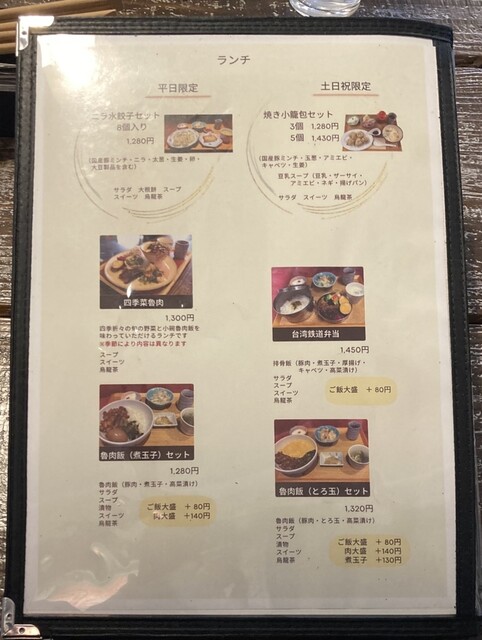 ランチ
平日限定
ニラ水餃子セット
8個入り
1,280円
(国産豚ミンチ・ニラ・太葱・生姜・卵・
大豆製品を含む)
サラダ 大根餅 スープ
スイーツ 烏龍茶
四季菜魯肉
1,300円
四季折々の旬の野菜と小碗魯肉飯を
味わっていただけるランチです
※季節により内容は異なります
スープ
スイーツ
烏龍茶
魯肉飯(煮玉子)セット
1,280円
魯肉飯(豚肉・煮玉子・高菜漬け)
サラダ
スープ
漬物
スイーツ
烏龍茶
ご飯大盛 +80円
肉大盛 +140円
土日祝限定
焼き小籠包セット
3個 1,280円
5個 1,430円
(国産豚ミンチ・玉葱・アミエビ・
キャベツ・生姜)
豆乳スープ(豆乳・ザーサイ・
アミエビ・ネギ・揚げパン)
サラダ スイーツ 烏龍茶
台湾鉄道弁当
1,450円
排骨飯(豚肉・煮玉子・厚揚げ・
キャベツ・高菜漬け)
サラダ
スープ
スイーツ
烏龍茶
ご飯大盛 +80円
魯肉飯(とろ玉)セット
1,320円
魯肉飯(豚肉・とろ玉・高菜漬け)
サラダ
スープ
漬物
スイーツ
烏龍茶
ご飯大盛 +80円
肉大盛 +140円
煮玉子 +130円